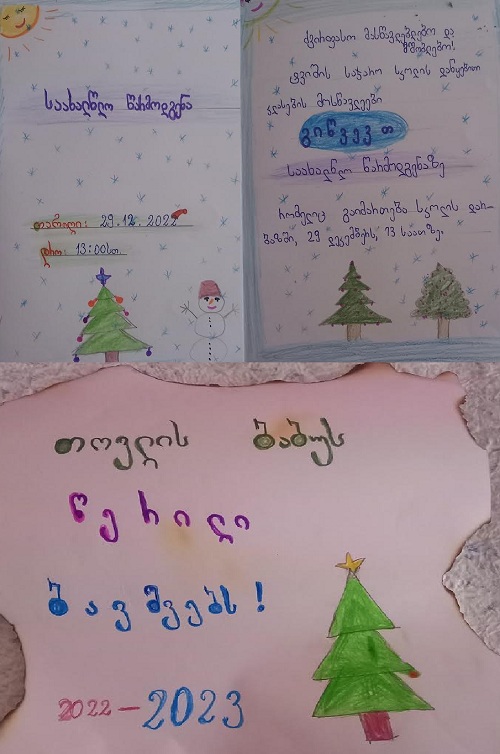 საახალწლო წარმოდგენა
თარიღი: 29.12.2022
დრო: 13:00სთ.
ძვირფასო მასწავლებლებო და
მშობლებო!
სკოლის დაწყებითი
კლასების მოსწავლეები
გიწვევთ
საახალწლო წარმოდგენაზე
რომელიც გაიმართება სკოლის დარ-
ბაზში, 29 დეკემბერს, 13 საათზე.
თოვლის ბაბუს
წერილი
ბავშვებს!
2022-2023